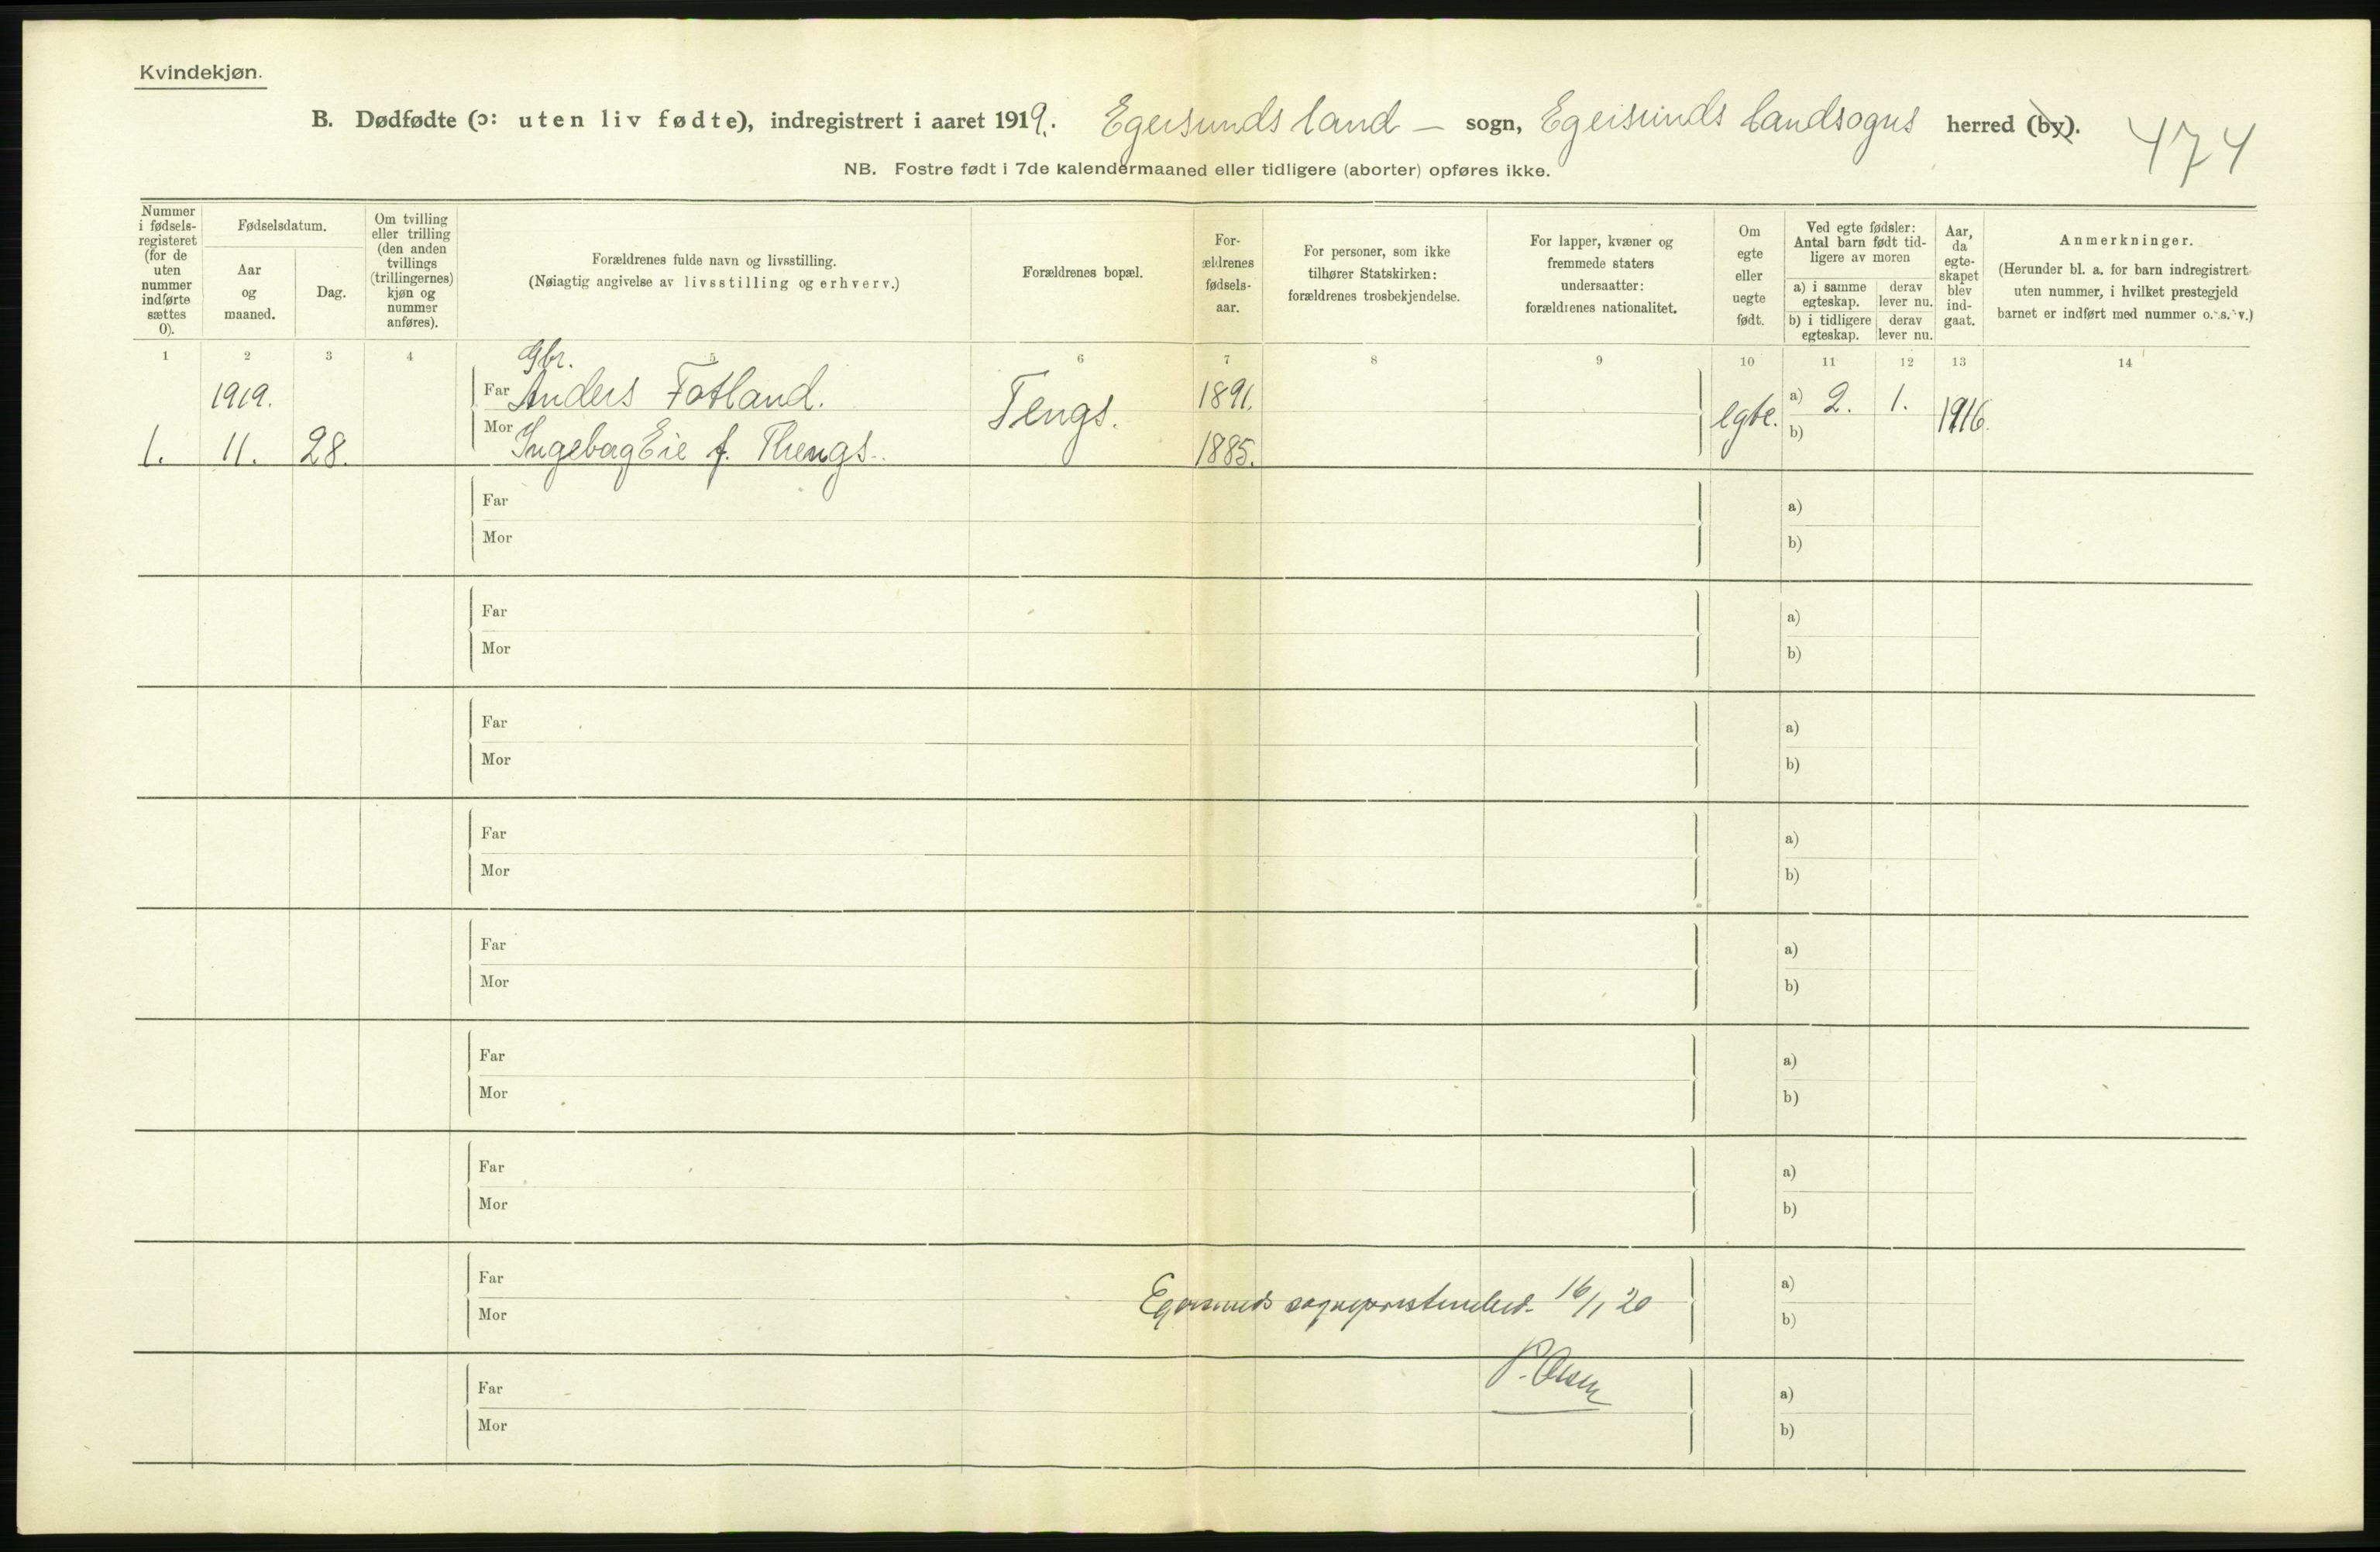 Kvindekjøn.
B. Dødfødte (ɔ: uten liv fødte), indregistrert i aaret 1919. Egersunds land – sogn, Egersunds landsogns herred (by).
474
NB. Fostre født i 7de kalendermaaned eller tidligere (aborter) opføres ikke.
Nummer i fødsels-registeret (for de uten nummer indførte sættes 0).
Fødselsdatum.
Aar og maaned.
Dag.
Om tvilling eller trilling (den anden tvillings (trillingernes) kjøn og nummer anføres).
Forældrenes fulde navn og livsstilling.
(Nøiagtig angivelse av livsstilling og erhverv.)
Forældrenes bopæl.
For-ældrenes fødsels-aar.
For personer, som ikke tilhører Statskirken: forældrenes trosbekjendelse.
For lapper, kvæner og fremmede staters undersaatter: forældrenes nationalitet.
Om egte eller uegte født.
Ved egte fødsler: Antal barn født tid-ligere av moren
a) i samme egteskap.
derav lever nu.
b) i tidligere egteskap.
derav lever nu.
Aar, da egte-skapet blev ind-gaat.
Anmerkninger.
(Herunder bl. a. for barn indregistrert uten nummer, i hvilket prestegjeld barnet er indført med nummer o. s. v.)
1 2 3 4 5 6 7 8 9 10 11 12 13 14
Gbr.
1919. Far Anders Fotland. Tengs. 1891. egte. a) 2. 1. 1916.
1. 11. 28. Mor Ingeborg Eie f. Thengs. 1885. b)
Far a)
Mor b)
Far a)
Mor b)
Far a)
Mor b)
Far a)
Mor b)
Far a)
Mor b)
Far a)
Mor b)
Far a)
Mor b)
Far a)
Mor Egersunds sogneprestembed 16/1 20 b)
P. Olsen
Far a)
Mor b)